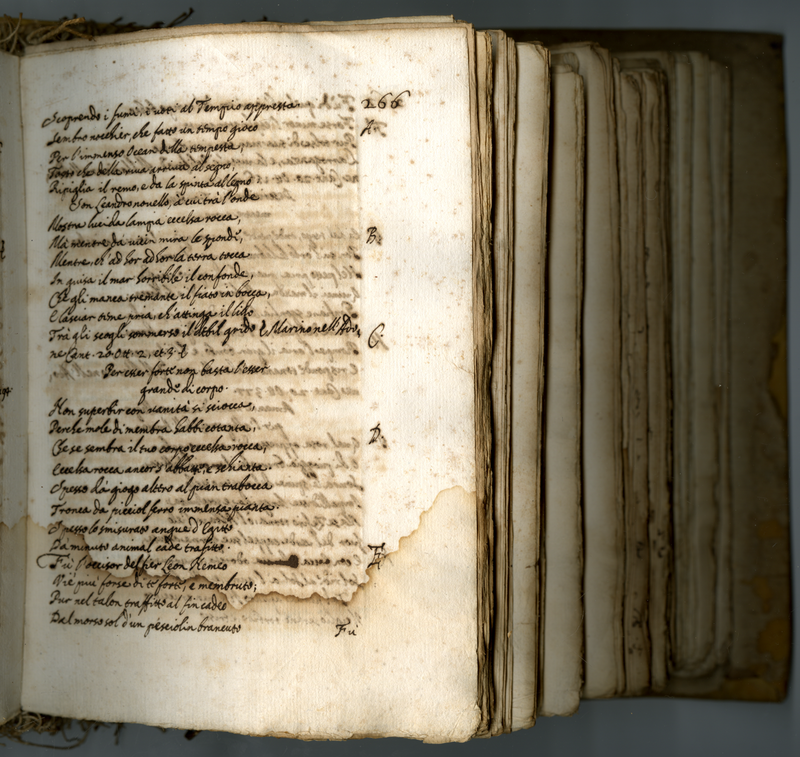 266
Scoprendo i fumi, i voti al Tempio appresta.
Sembro nocchier, che fatto un tempo gioco
A.
Per l'immenso Ocean della tempesta,
Tosto che della riva arrive al segno,
Ripiglia il remo, e da la spinta al legno.
Son Leandro novello, à cui trà l'onde
Mostra lucida lampa eccelsa rocca,
Mà mentre dà vicin mira le sponde,
B.
Mentre, ch'ad hor ad hor la terra tocca
In guisa il mar horribile il confonde,
Che gli manca tremante il fiato in bocca,
E lasciar teme pria, ch'attinga il lido
Trà gli scogli sommerso il debil grido. Marino nell'Ado-
C.
ne Cant. 20. Ott. 2, et 3.
Per esser forte non basta l'esser
grande di corpo.
Non superbir con vanità sì sciocca,
Perche mole di membra habbi cotanta,
D.
Che se sembra il tuo corpo eccelsa rocca,
Eccelsa rocca ancor s'abbatte, e schianta.
Spesso dà giogo altero al pian trabocca
Tronca da picciol ferro immensa pianta.
Spesso lo smisurato angue d'Egitto
Dà minuto animal cade trafitto.
E.
Fù l'occisor del fier Leon Nemeo
Vie più forse di te forte, e membruto;
Pur nel talon traffitto al fin cadeo
Dal morso sol d'un pesciolin branchuto
Fù